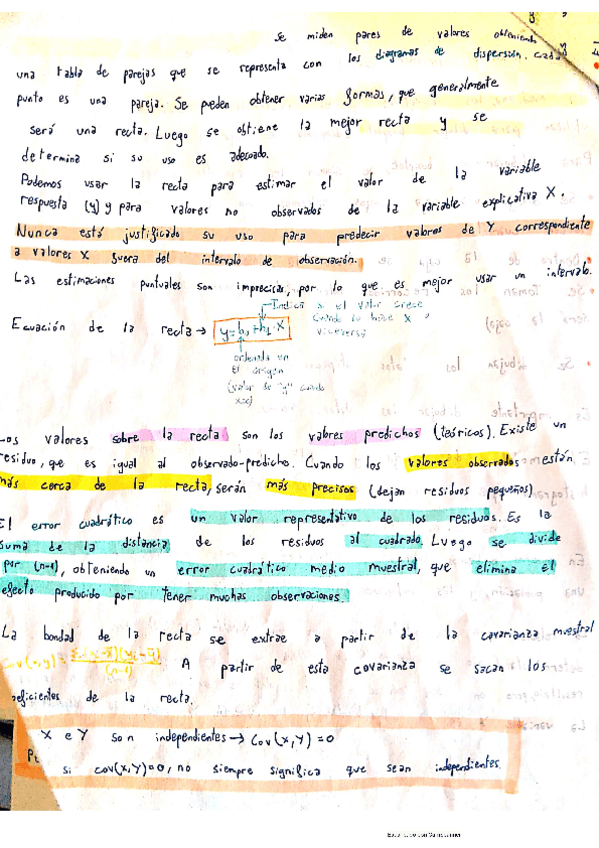 Se miden pares de valores obteniendo
una tabla de parejas que se representa con los diagramas de dispersión. Cada
punto es una pareja. Se pueden obtener varias formas, que generalmente
será una recta. Luego se obtiene la mejor recta y se
determina si su uso es adecuado.
Podemos usar la recta para estimar el valor de la variable
respuesta (y) y para valores no observados de la variable explicativa X.
Nunca está justificado su uso para predecir valores de Y correspondiente
a valores X fuera del intervalo de observación.
Las estimaciones puntuales son imprecisas, por lo que es mejor usar un intervalo.
Indica si el valor crece
cuando lo hace X o
viceversa
Ecuación de la recta → y = b₀ + b₁ · X
ordenada en
el origen
(valor de "y" cuando
x=0)
Los valores sobre la recta son los valores predichos (teóricos). Existe un
residuo, que es igual al observado-predicho. Cuando los valores observados están
más cerca de la recta, serán más precisos (dejan residuos pequeños)
El error cuadrático es un valor representativo de los residuos. Es la
suma de la distancia de los residuos al cuadrado. Luego se divide
por (n-1), obteniendo un error cuadrático medio muestral, que elimina el
efecto producido por tener muchas observaciones.
La bondad de la recta se extrae a partir de la covarianza muestral
A partir de esta covarianza se sacan los
coeficientes de la recta.
X e Y son independientes → Cov(X,Y) = 0
si cov(X,Y)=0, no siempre significa que sean independientes.